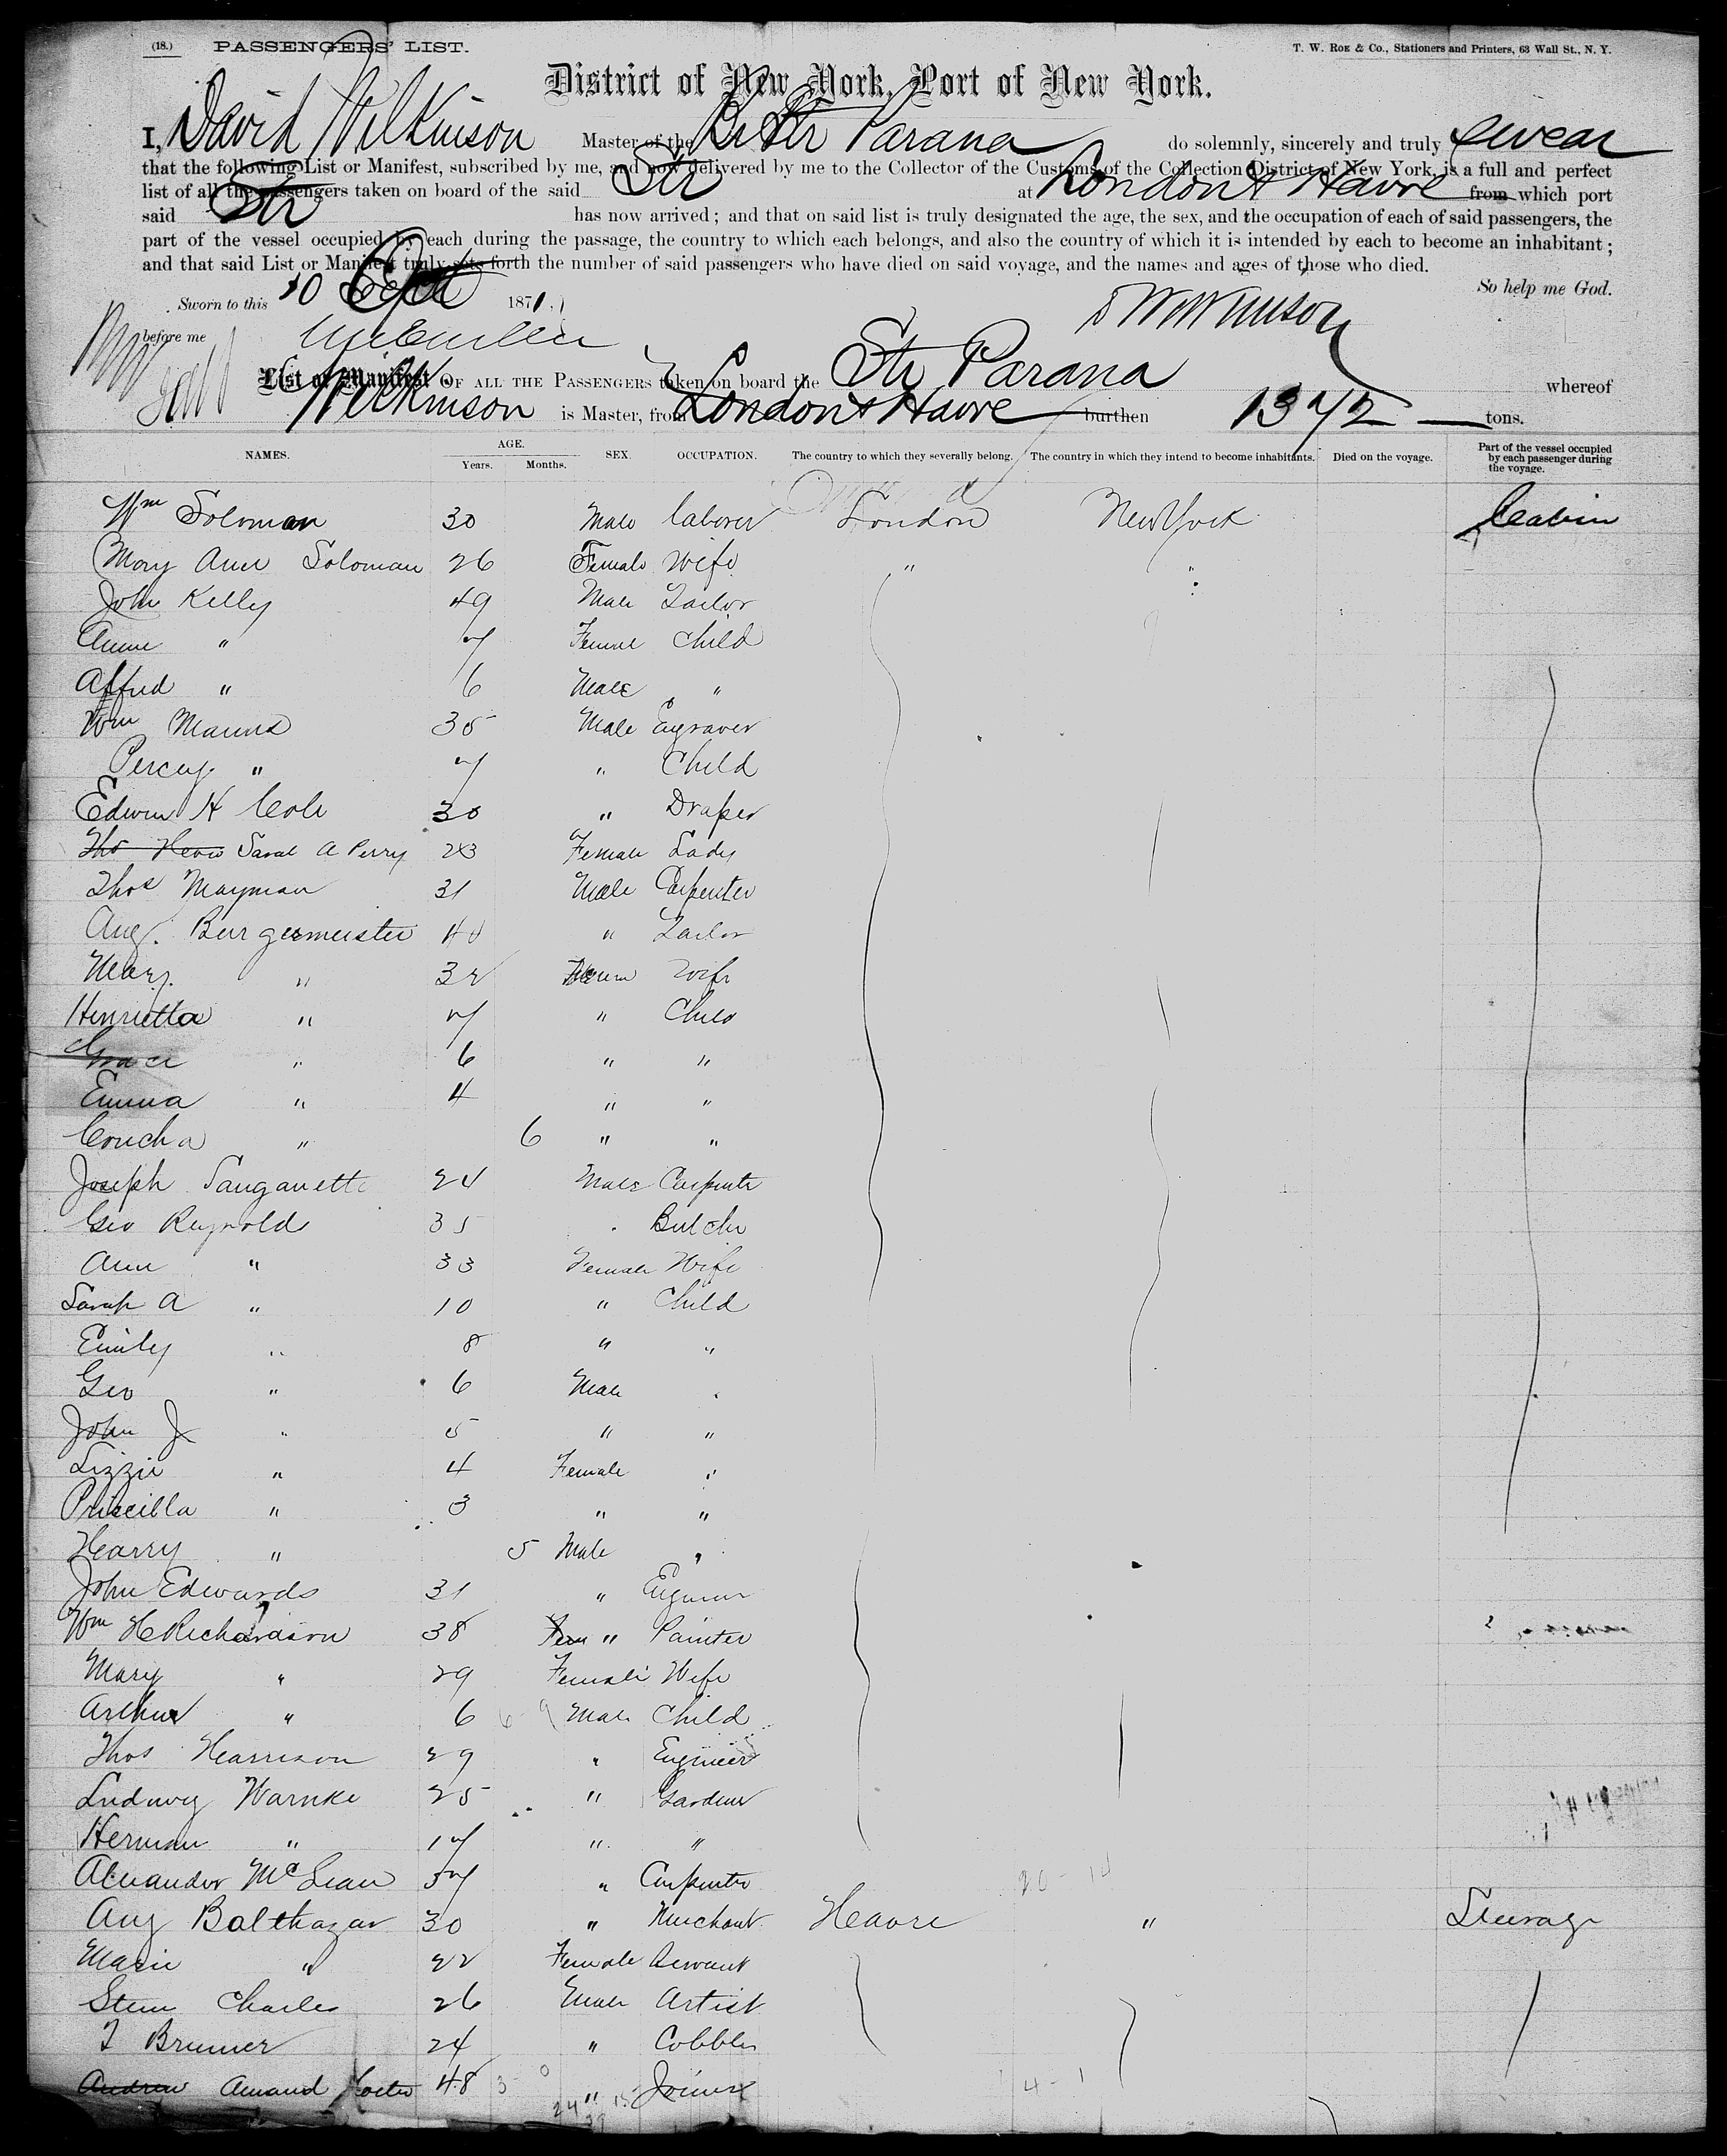 (18.) PASSENGERS' LIST. T. W. ROE & Co., Stationers and Printers, 63 Wall St., N. Y.
District of New York, Port of New York.
I, David Wilkinson Master of the Br Str Parana do solemnly, sincerely and truly swear
that the following List or Manifest, subscribed by me, and now delivered by me to the Collector of the Customs of the Collection District of New York, is a full and perfect
list of all the passengers taken on board of the said Str at London & Havre from which port
said Str has now arrived; and that on said list is truly designated the age, the sex, and the occupation of each of said passengers, the
part of the vessel occupied by each during the passage, the country to which each belongs, and also the country of which it is intended by each to become an inhabitant;
and that said List or Manifest truly sets forth the number of said passengers who have died on said voyage, and the names and ages of those who died.
So help me God.
Sworn to this 10 Oct 1871
D Wilkinson
before me
List or Manifest OF ALL THE PASSENGERS taken on board the Str Parana whereof
Wilkinson is Master, from London & Havre burthen 1372 tons.
NAMES. AGE. Years. Months. SEX. OCCUPATION. The country to which they severally belong. The country in which they intend to become inhabitants. Died on the voyage. Part of the vessel occupied by each passenger during the voyage.
Wm Soloman 30 Male laborer London New York Cabin
Mary Ann Soloman 26 Female Wife " "
John Kelly 49 Male Tailor
Annie " 7 Female Child
Alfred " 6 Male "
Wm Manns 35 Male Engraver
Percy " 7 " Child
Edwin H Cole 30 " Draper
Tho Sarah A Perry 23 Female Lady
Thos Mayman 31 Male Carpenter
Aug. Burgermeister 40 " Tailor
Mary " 32 Wife
Henrietta " 7 " Child
Grace " 6 " "
Emma " 4 " "
" 6 " "
Joseph 24 Male Carpenter
Geo Reynold 35 Butcher
Ann " 33 Female Wife
Sarah A " 10 " Child
Emily " 8 " "
Geo " 6 Male
John J " 5 " "
Lizzie " 4 Female "
Priscilla " 3 " "
Harry " 5 Male "
John Edwards 31 " Engineer
Wm H Richardson 38 " Painter
Mary " 29 Female Wife
Arthur " 6 Male Child
Thos Harrison 29 " Engineer
Ludwig Warnke 25 " Gardener
Herman " 17 " "
Alexander McLean 57 " Carpenter
Aug Balthazar 30 " Merchant Havre " Steerage
Marie " 22 Female Servant
Stein Charles 26 Male Artist
J Brunner 24 " Cobbler
Andrew Amand 48 " Joiner